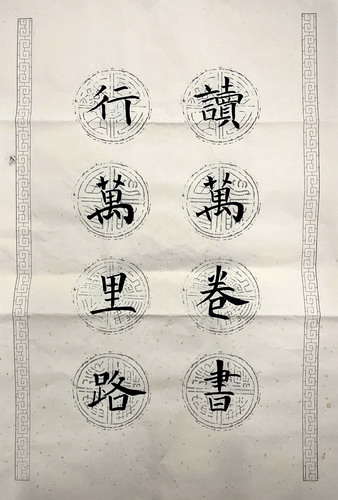 讀萬卷書
行萬里路